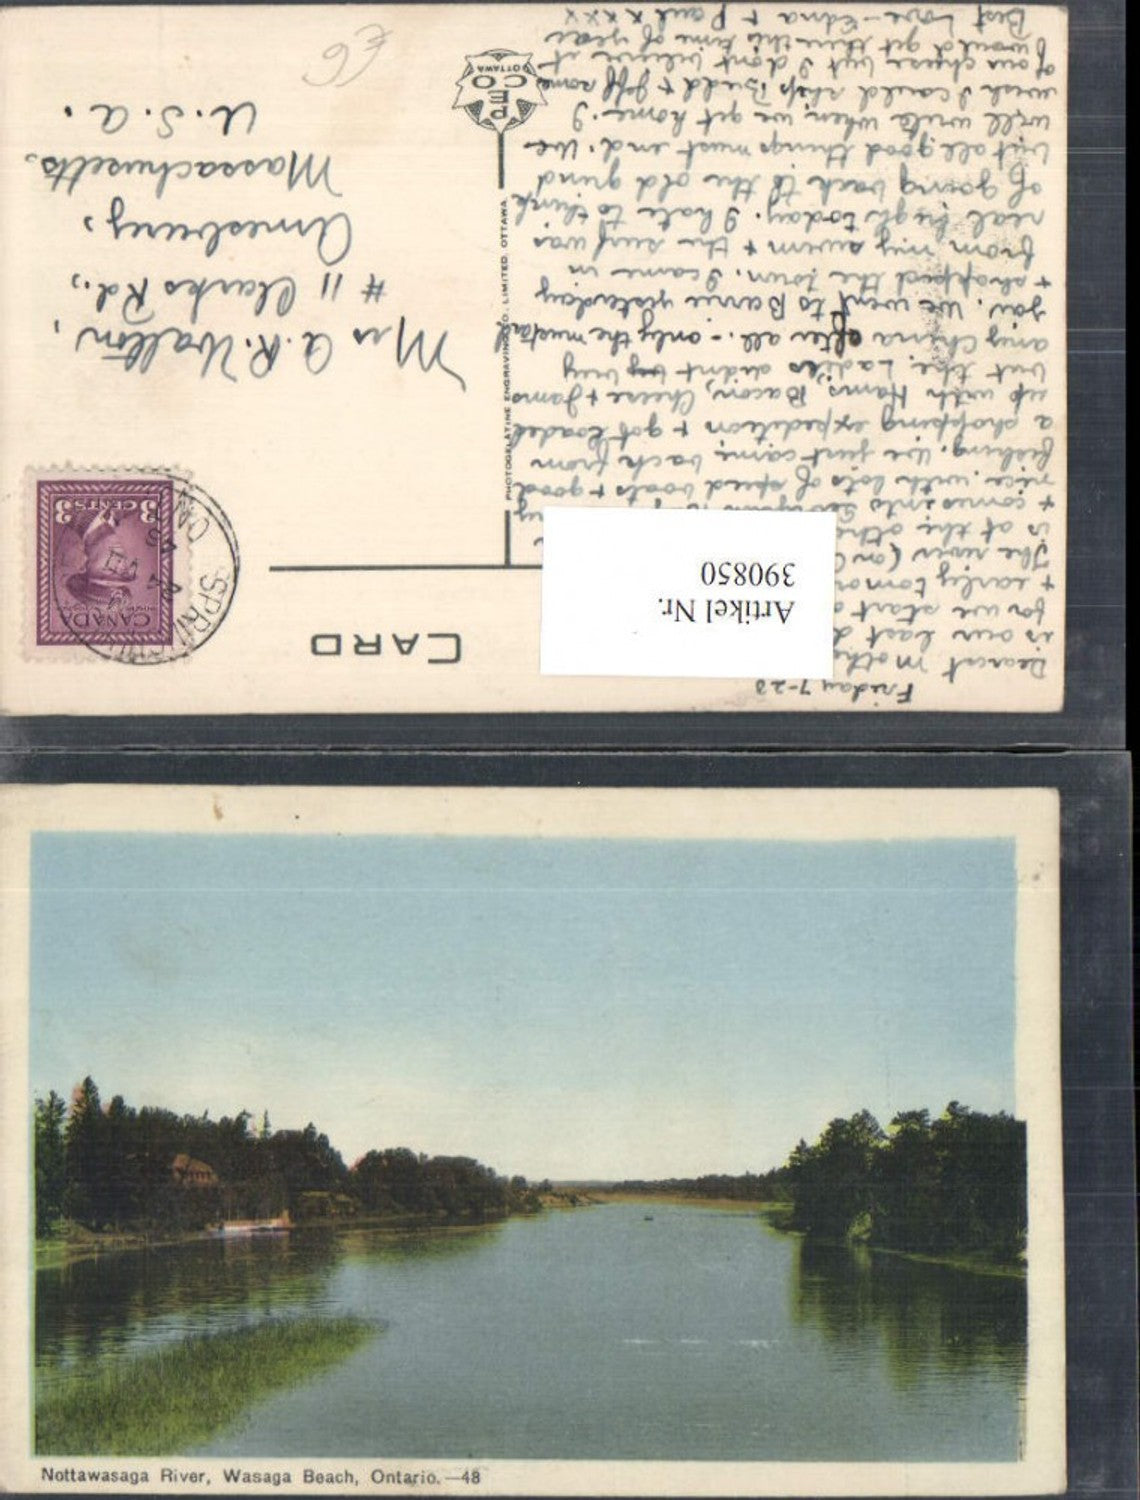 Friday 7-23
Dearest Mothe
is our last d
for we start o
+ early tomor
The river (on
is at the othe
+ comes into
nice. with lots of speed boats + good
fishing. We just came back from
a shopping expedition + got loaded
up with Hams, Bacon, Cheese + Jams
but the Ladies didn't buy
any China after all. - only the mustard
you. We went to Barrie yesterday
+ shopped the town. I came in
from my swim + the surf was
real high today. I hate to think
of going back to the old grind
but all good things must end. We
will write when we get home. I
wish I could ship Budd + Jeff some
of our cheese but I don't believe it
would get there this time of year
Best Love - Edna + Paul xxxx
CARD
Artikel Nr.
390850
PHOTOGELATINE ENGRAVING CO. LIMITED. OTTAWA
PECO
OTTAWA
CANADA
3 CENTS 3
SPRIN
ONT
48
Mrs A. R. Walton,
# 11 Clarks Rd.,
Amesbury,
Massachusetts.
U.S.A.
£6
Nottawasaga River, Wasaga Beach, Ontario.—48